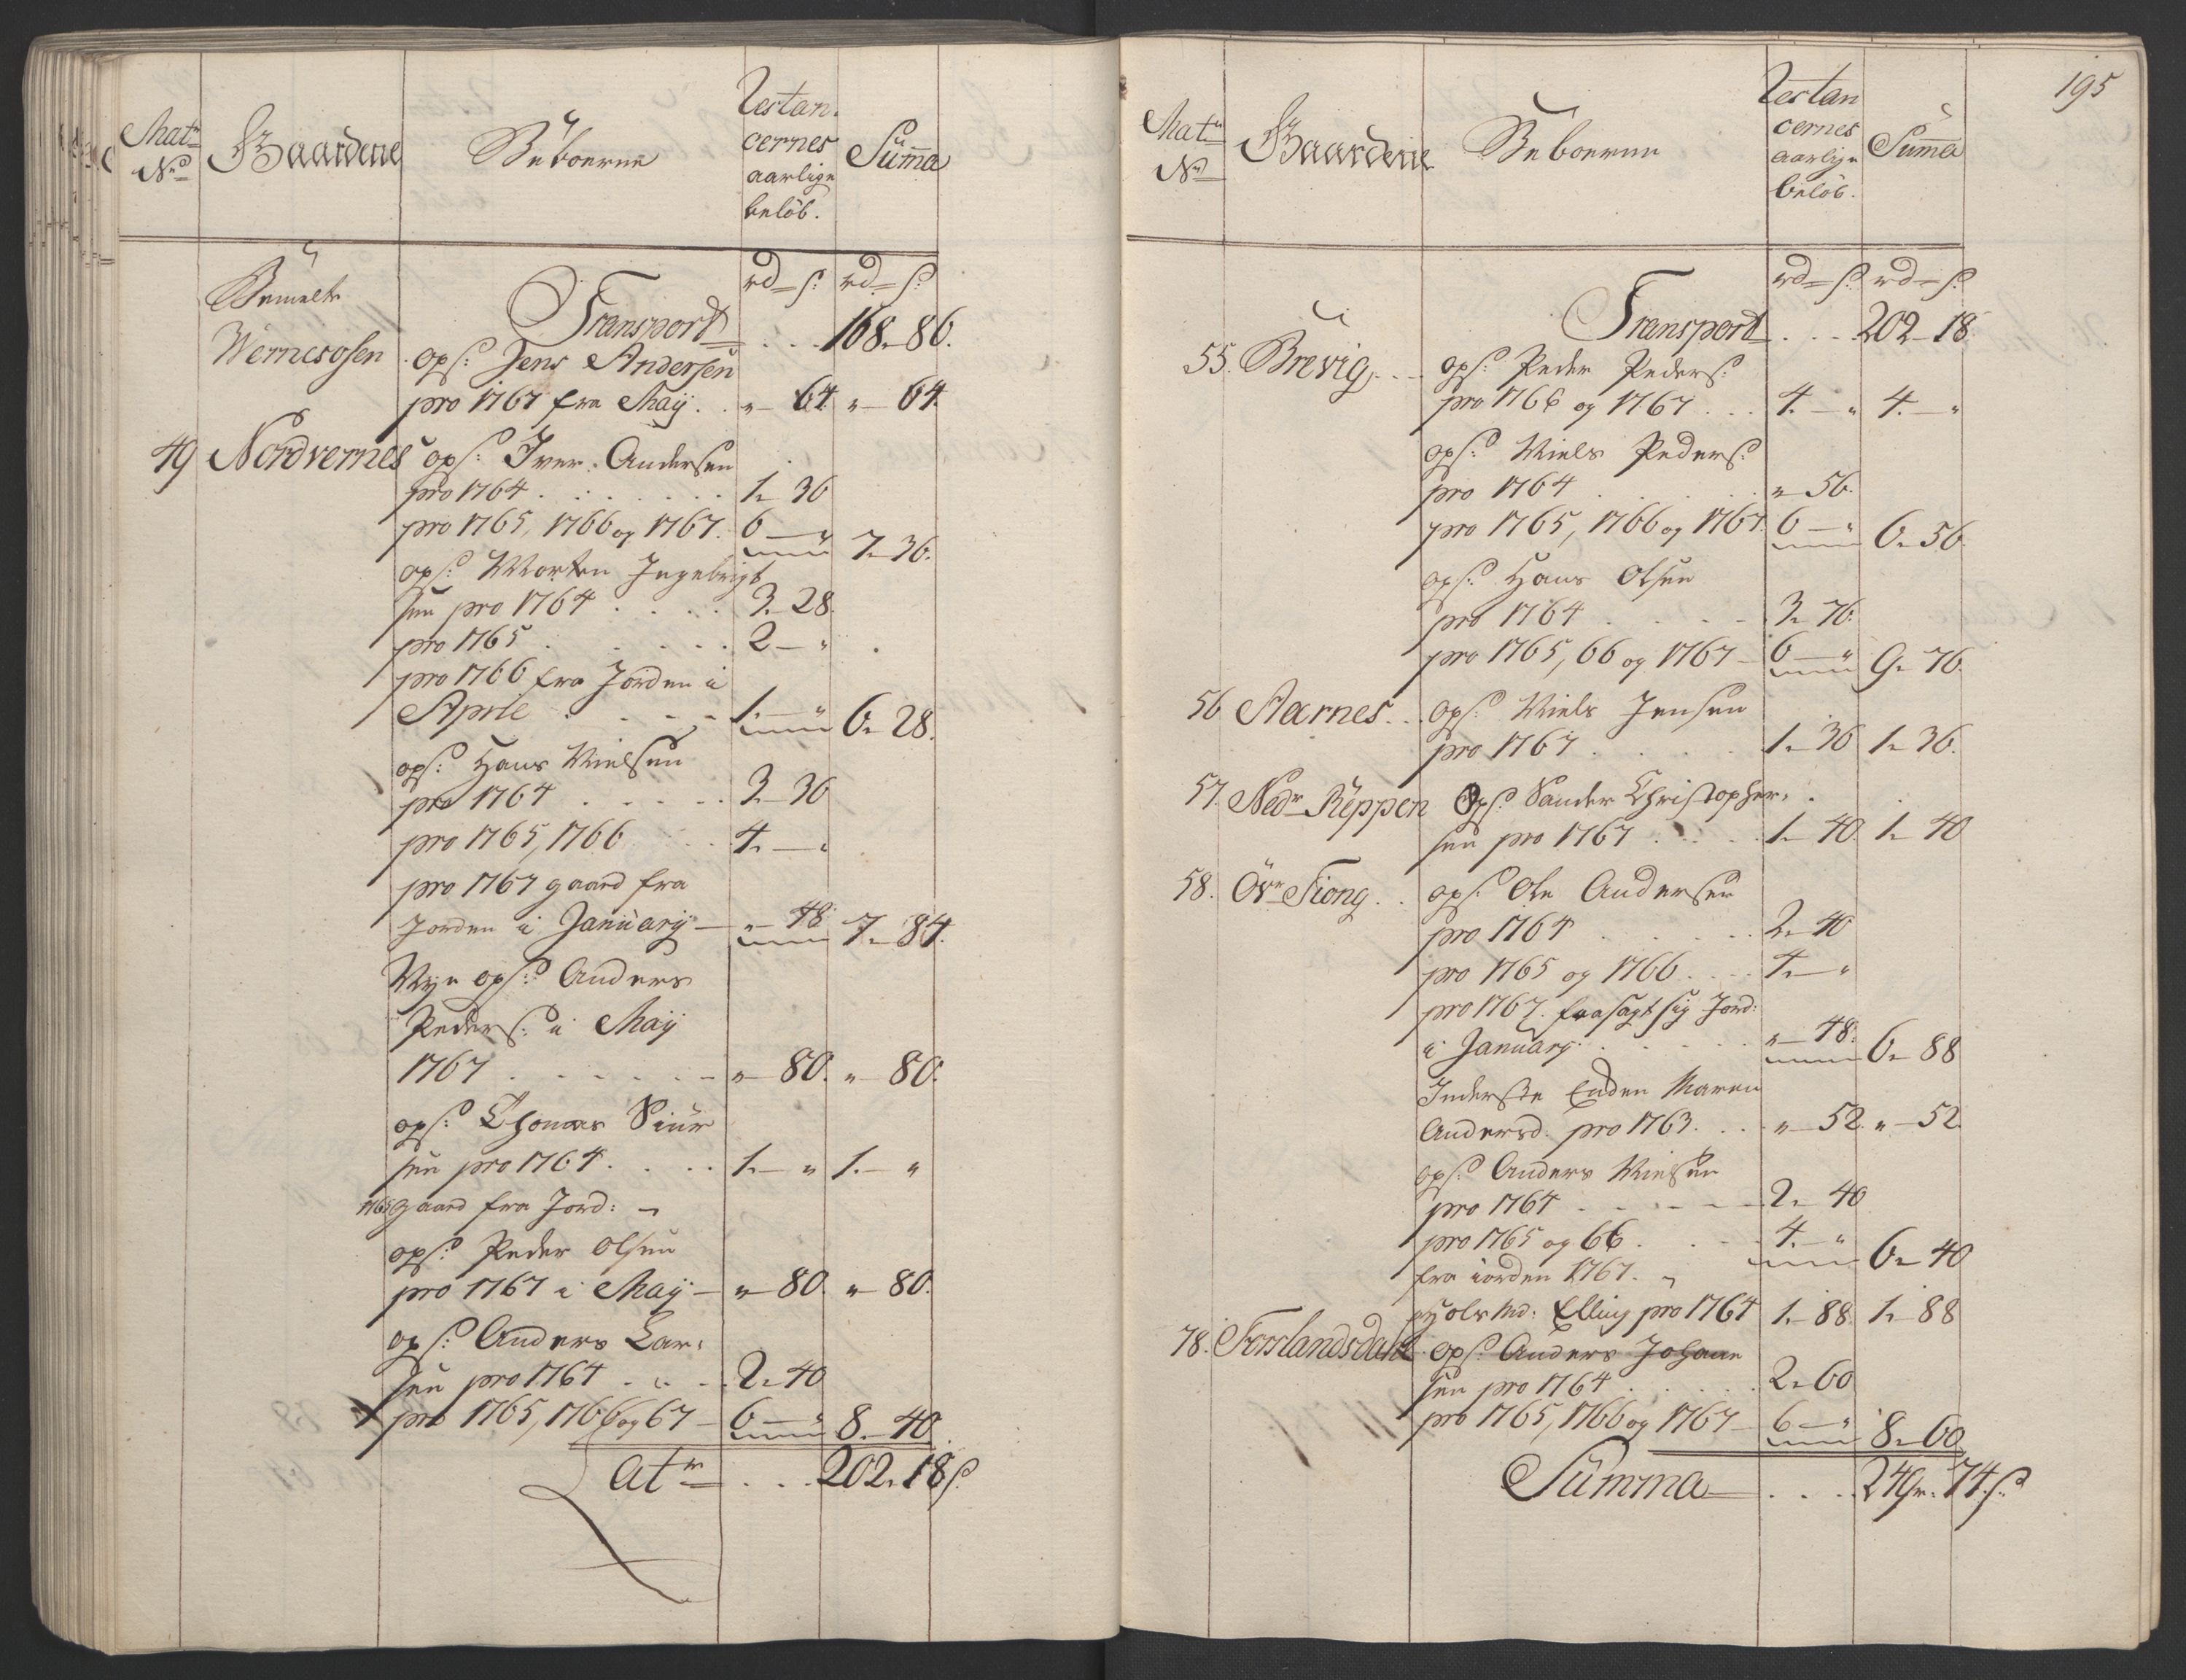 Matr
No
Gaardene
Beboerne
Restan-
cernes
aarlige
beløb.
Summa
rd - s: rd - s:
Bemelte
Transport . . . 168. 86.
Wernesosen
ops: Jens Andersen
pro 1767 fra Maij . . „ - 64. „ - 64.
49 Nordvernes ops: Iver Andersen
pro 1764 . . . . . . 1. 36
pro 1765, 1766 og 1767. 6 - „ 7. 36.
ops: Morten Ingebrigt
sen pro 1764 . . . . 3. 28.
pro 1765 . . . . . 2 - „
pro 1766 fra Jorden i
Aprile . . . . 1. - „ 6. 28.
ops: Hans Nielsen
pro 1764 . . . . . 3. 36
pro 1765, 1766 . . . 4. - „
pro 1767 gaaed fra
Jorden i Januarij - „ - 48 7. 84.
Nye ops: Anders
Peders: i Maij
1767 . . . . . . „ - 80. „ - 80.
ops: Thomas Siur
sen pro 1764. . . . 1. - „ 1. - „
1765 gaaed fra Jord: -
ops: Peder Olsen
pro 1767 i Maij - „ - 80. „ - 80.
ops: Anders Lar-
sen pro 1764 . . . 2. 40
pro 1765, 1766 og 67 - 6 - „ 8. 40.
Latr . . . 202. 18 s.
195
Matr
No
Gaardene
Beboerne
Restan
cernes
aarlige
beløb.
Summa
rd - s: rd - s:
Transport . . . 202 - 18
55. Brevig . . . ops: Peder Peders:
pro 1766 og 1767 . . . 4. - „ 4. - „
ops: Niels Peders:
pro 1764 . . . . . „ 56.
pro 1765, 1766 og 1767. 6 - „ 6. 56.
ops: Hans Olsen
pro 1764 . . . . 3. 76.
pro 1765, 66 og 1767 - 6 - „ 9. 76.
56 Aarnes . . ops: Niels Jensen
pro 1767 . . . . . 1. 36 1. 36.
57. Nedr Reppen Ops: Sander Christopher-
sen pro 1767 . . . . 1. 40. 1. 40
58. Övr Tiong . . ops: Ole Andersen
pro 1764 . . . . . 2. 40
pro 1765 og 1766 . . . 4. - „
pro 1767. frasagt sig Jord:
i Januarij . . . . . „ - 48. 6. 88
Inderste Enken Maren
Andersd: pro 1763. . . „ - 52. „ - 52.
ops: Anders Nielsen
pro 1764 . . . . . 2. 40
pro 1765 og 66 . . . 4. - „ 6. 40
fra iorden 1767. -
Elling pro 1764 1. 88. 1. 88
78. Forslandsdalen ops: Anders Johan
sen pro 1764 . . . . . 2. 60
pro 1765, 1766 og 1767 - 6 - „ 8. 60
Summa . . . . 249. 74. s.